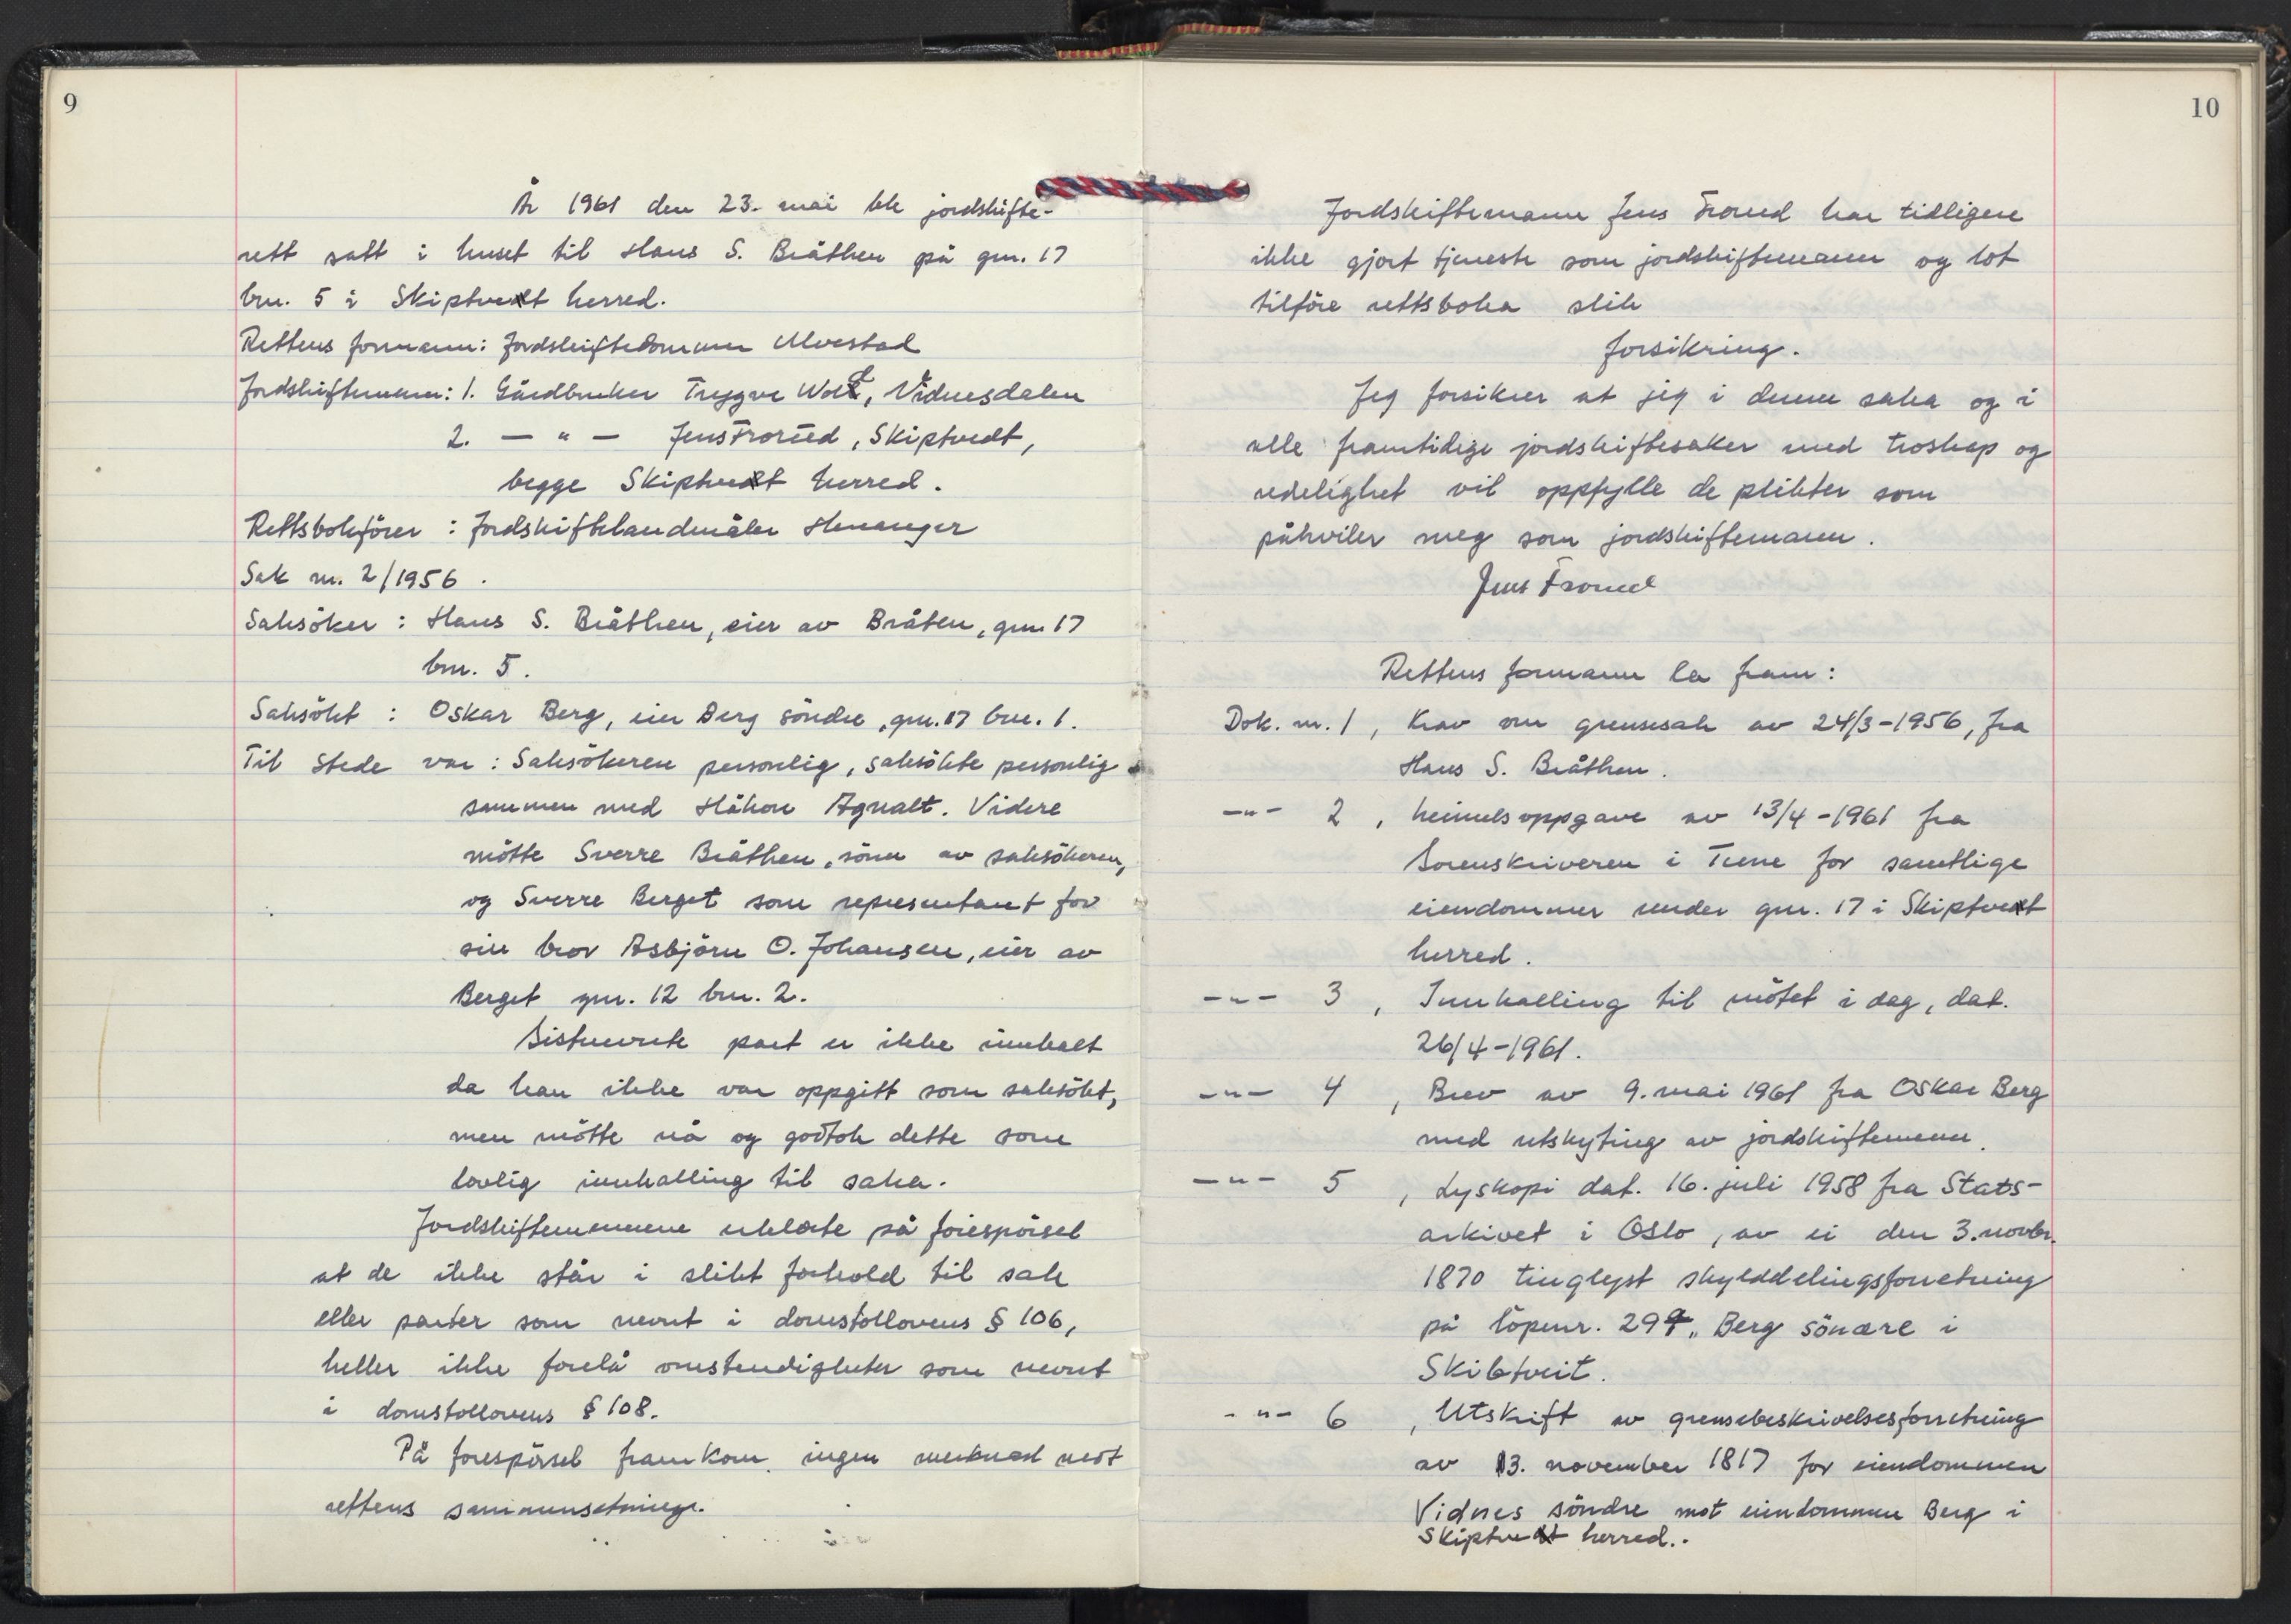 9
År 1961 den 23. mai ble jordskifte-
rett satt i huset til Hans S. Bråthen på gnr. 17
bnr. 5 i Skiptvet herred.
Rettens formann: Jordskiftedommer Ulvestad
Jordskiftemenn: 1. Gårdbruker Trygve Wold, Vidnesdalen
2. — " — Jens Frorud, Skiptvedt,
begge Skiptvet herred.
Rettsbokförer: Jordskiftelandmåler Henanger
Sak nr. 2/1956.
Saksöker: Hans S. Bråthen, eier av Bråten, gnr. 17
bnr. 5.
Saksökt: Oskar Berg, eier Berg söndre, gnr. 17 bnr. 1.
Til stede var: Saksökeren personlig, saksökte personlig
sammen med Håkon Agnalt. Videre
mötte Sverre Bråthen, sönn av saksökeren,
og Sverre Berget som representant for
sin bror Asbjörn O. Johansen, eier av
Berget gnr. 12 bnr. 2.
Sistnevnte part er ikke innkalt
da han ikke var oppgitt som saksökt,
men mötte nå og godtok dette som
lovlig innkalling til saka.
Jordskiftemennene erklærte på forespörsel
at de ikke står i slikt forhold til sak
eller parter som nevnt i domstollovens § 106,
heller ikke forelå omstendigheter som nevnt
i domstollovens § 108.
På forespörsel framkom ingen merknad mot
rettens sammensetning.
10
Jordskiftemann Jens Frorud har tidligere
ikke gjort tjeneste som jordskiftemann og lot
tilföre rettsboka slik
forsikring.
Jeg forsikrer at jeg i denne saka og i
alle framtidige jordskiftesaker med troskap og
redelighet vil oppfylle de plikter som
påhviler meg som jordskiftemann.
Jens Frorud
Rettens formann la fram:
Dok. nr. 1, Krav om grensesak av 24/3-1956, fra
Hans S. Bråthen.
—"— 2, heimelsoppgave av 13/4-1961 fra
Sorenskriveren i Tune for samtlige
eiendommer under gnr. 17 i Skiptvet
herred.
—"— 3, Innkalling til mötet i dag, dat.
26/4-1961.
—"— 4, Brev av 9. mai 1961 fra Oskar Berg
med utskyting av jordskiftemenn.
—"— 5, Lyskopi dat. 16. juli 1958 fra Stats-
arkivet i Oslo, av ei den 3. novbr.
1870 tinglyst skylddelingsforretning
på löpenr. 297, Berg söndre i
Skibtveit.
—"— 6, Utskrift av grensebeskrivelsesforretning
av 13. november 1817 for eiendommen
Vidnes söndre mot eiendommen Berg i
Skiptvet herred.